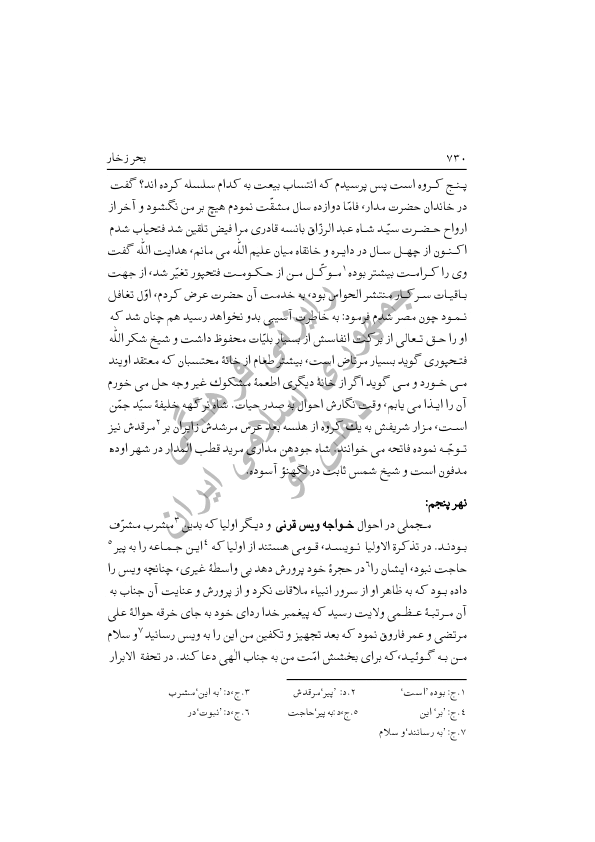 ۷۳۰ بحر زخار
پـنـج کـروه است پس پرسیدم که انتساب بیعت به کدام سلسله کرده اند؟ گفت
در خاندان حضرت مدار، فامّا دوازده سال مشقّت نمودم هیچ بر من نگشود و آخر از
ارواح حـضـرت سیّـد شـاه عبد الرزّاق بانسه قادری مرا فیض تلقین شد فتحیاب شدم
اکـنـون از چهـل سـال در دایـره و خانقاه میان علیم اللّه می مانم، هدایت اللّه گفت
وی را کـرامـت بیشتر بوده۱ مـوکّـل مـن از حـکـومت فتحپور تغیّر شد، از جهت
بـاقیـات سـرکـار منتشر الحواس بود، به خدمت آن حضرت عرض کردم، اوّل تغافل
نـمـود چون مصر شدم فرمود: به خاطرت آسیبی بدو نخواهد رسید هم چنان شد که
او را حـق تـعالی از برکت انفاسش از بسیار بلیّات محفوظ داشت و شیخ شکر اللّه
فتـحپوری گوید بسیار مرتاض است، بیشتر طعام از خانهٔ محتسبان که معتقد اویند
مـی خـورد و مـی گوید اگر از خانهٔ دیگری اطعمهٔ مشکوك غیر وجه حل می خورم
آن را ایـذا مـی یابم، وقـت نگارش احوال به صدر حیات. شاه نرگهه خلیفهٔ سیّد جمّن
اسـت، مزار شریفش به یك کروه از هلسه بعد عرس مرشدش زایران بر۲ مرقدش نیز
تـوجّـه نموده فاتحه می خوانند. شاه جودهن مداری مرید قطب المدار در شهر اوده
مدفون است و شیخ شمس ثابت در لکهنؤ آسوده.
نهر پنجم:
مـجملی در احوال خـواجه ویس قرنی و دیـگر اولیا که بدین۳ مشرب مشرّف
بـودنـد. در تذکرة الاولیا نـویسـد، قـومی هستند از اولیا که۴ ایـن جـمـاعه را به پیر۵
حاجت نبود، ایشان را۶ در حجرهٔ خود پرورش دهد بی واسطهٔ غیری، چنانچه ویس را
داده بـود که به ظاهر او از سرور انبیاء ملاقات نکرد و از پرورش و عنایت آن جناب به
آن مـرتبـهٔ عـظـمی ولایت رسید که پیغمبر خدا ردای خود به جای خرقه حوالهٔ علی
مرتضی و عمر فاروق نمود که بعد تجهیز و تکفین من این را به ویس رسانید۷ و سلام
مـن بـه گـوئیـد، که برای بخشش امّت من به جناب الٰهی دعا کند. در تحفة الابرار
۱. ج: بوده ’است‘ ۲. د: ’پیر‘ مرقدش ۳. ج، د: ’به این‘ مشرب
۴. ج: ’بر‘ این ۵. ج، د: به پیر ’حاجت ۶. ج، د: ’نبوت‘ در
۷. ج: ’به رسانند‘ و سلام
رایزنی فرهنگی
جمهوری اسلامی ایران
دهلی نو